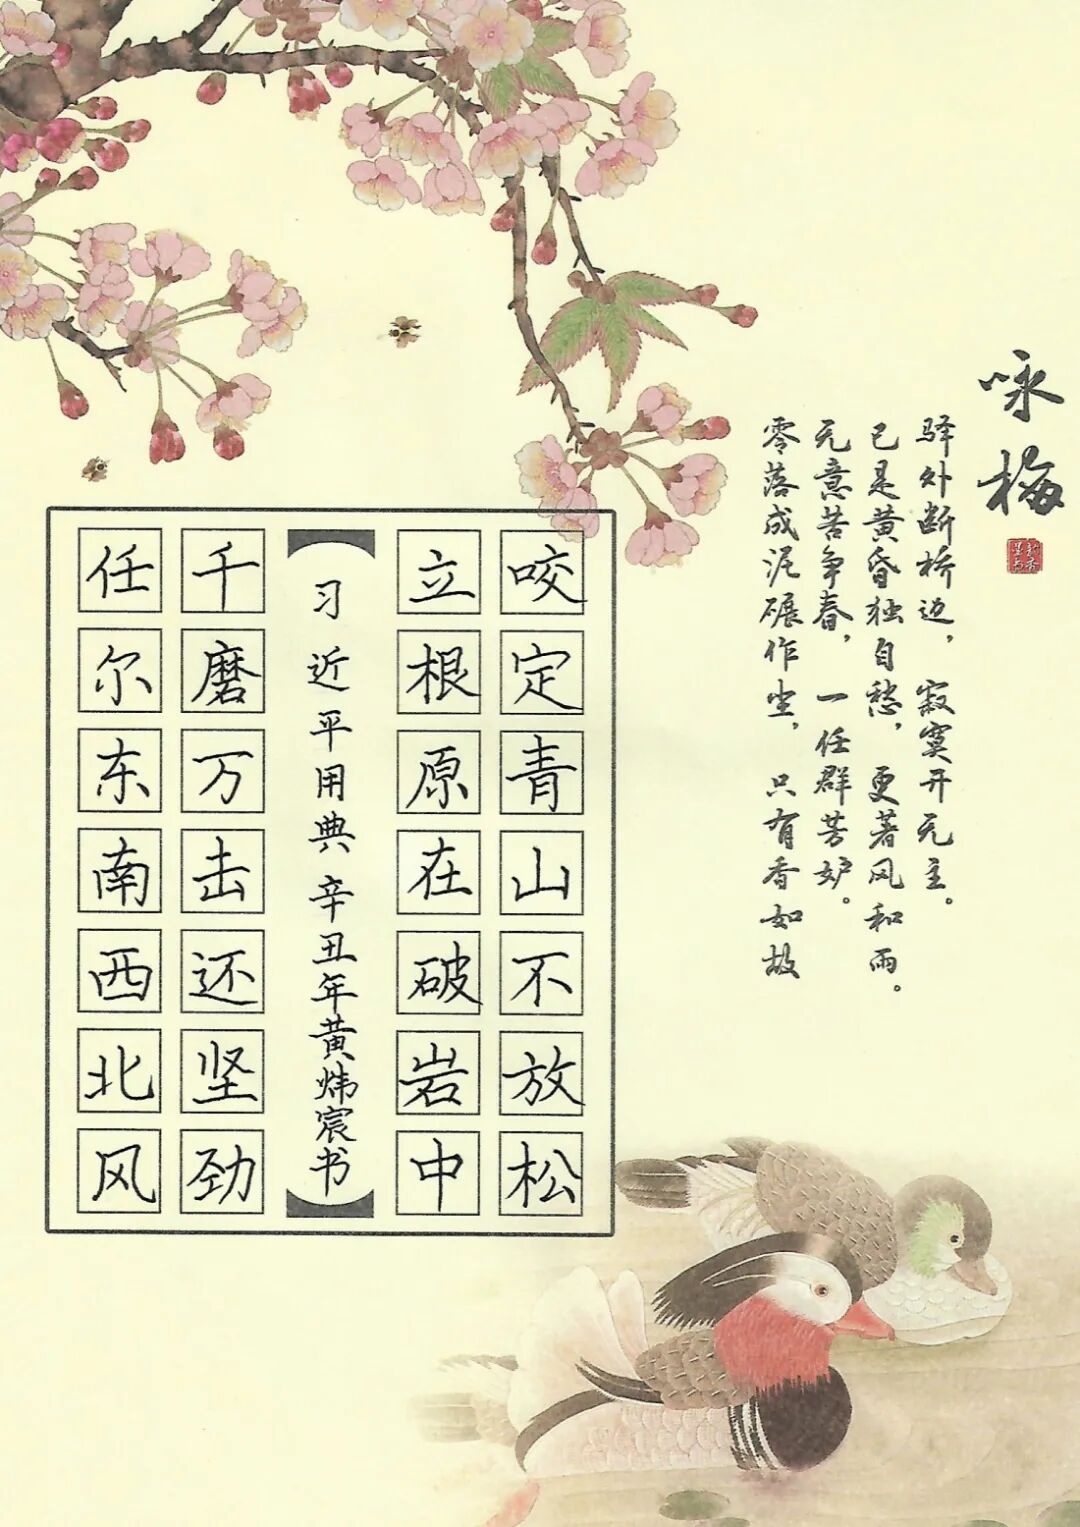 咏梅
驿外断桥边，寂寞开无主。
已是黄昏独自愁，更著风和雨。
无意苦争春，一任群芳妒。
零落成泥碾作尘，只有香如故
咬定青山不放松
立根原在破岩中
习近平用典 辛丑年黄炜宸书
千磨万击还坚劲
任尔东南西北风